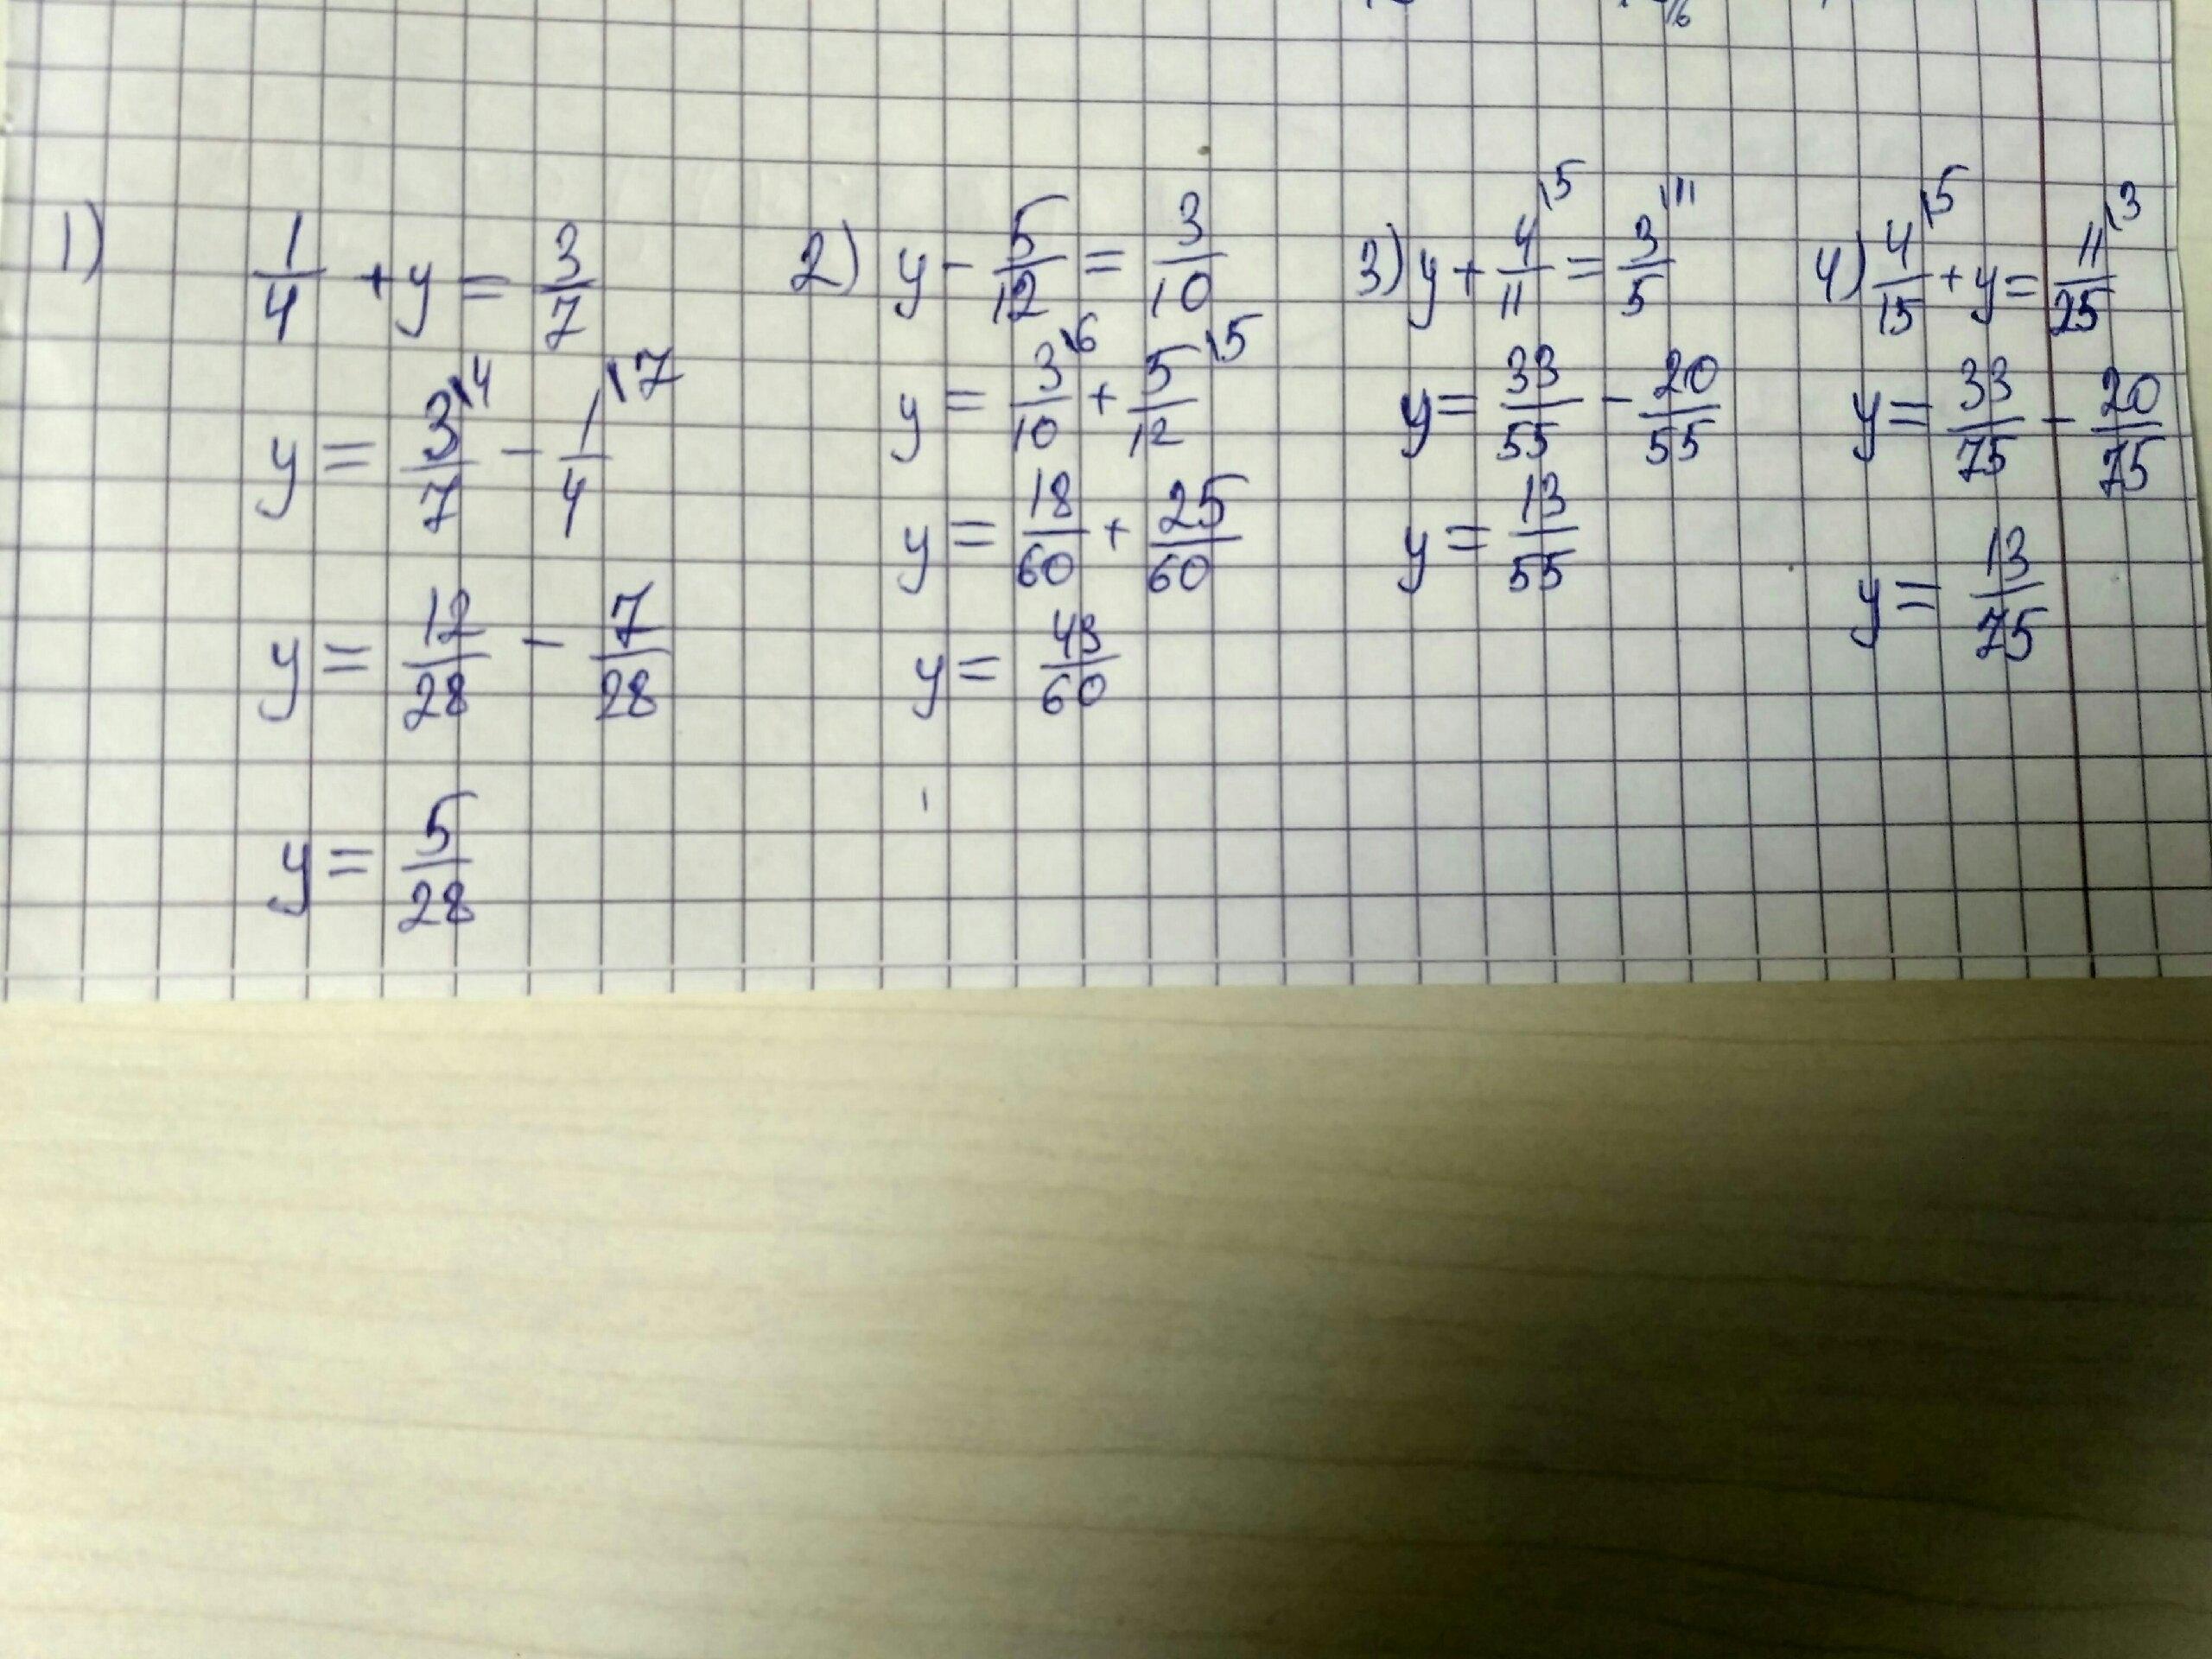 1) 1/4 + y = 3/7
y = 3\4/7 - 1\7/4
y = 12/28 - 7/28
y = 5/28
2) y - 5/12 = 3/10
y = 3\6/10 + 5\5/12
y = 18/60 + 25/60
y = 43/60
3) y + 4\5/11 = 3\11/5
y = 33/55 - 20/55
y = 13/55
4) 4\5/15 + y = 11\3/25
y = 33/75 - 20/75
y = 13/75